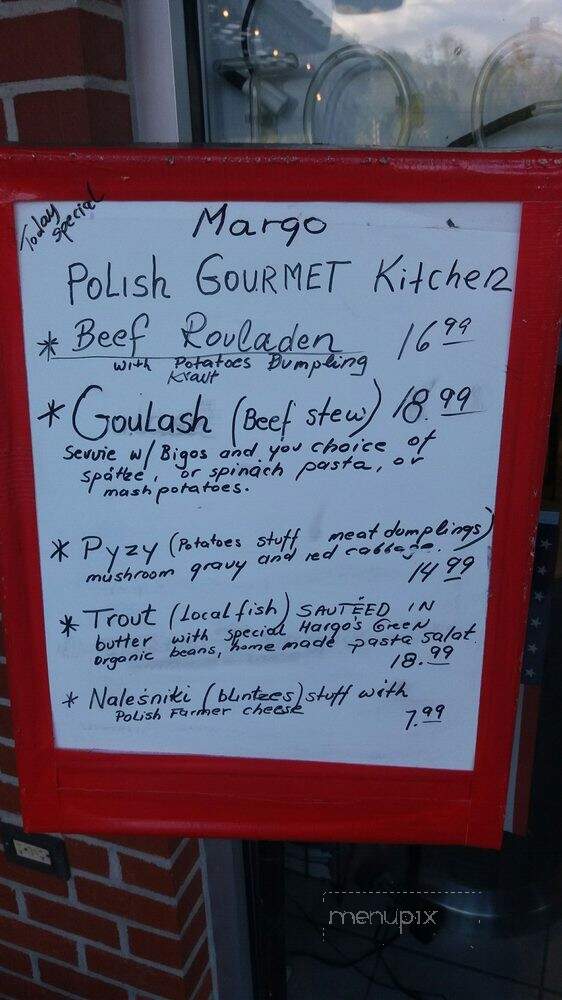 Today
special
Margo
POLISH GOURMET KitcheN
* Beef Rouladen 16.99
with Potatoes Dumpling
Kraut
* GouLash (Beef stew) 18.99
servie w/ Bigos and you choice of
spätze, or spinach pasta, or
mash potatoes.
* Pyzy (Potatoes stuff meat dumplings)
mushroom gravy and red cabbage.
14.99
* Trout (Local fish) SAUTÉED IN
butter with special Margo's Green
organic beans, home made pasta salat.
18.99
* Naleśniki (blintzes) stuff with
Polish Farmer cheese
7.99
menupix